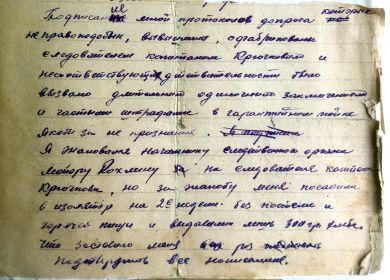 Подписание мной протоколов допроса которые
не правоподобны, вымышлены, сфабрикованы
следователем капитаном Крючковым и
несоответствующих действительности было
вызвано длительного одиночного заключения
и частыми
якобы за не признания.
Я жаловался начальнику следственного органа
майору Рохлину за на следователя капитана
Крючкова, но за жалобу меня посадили
в изолятор на 2 недели без постели и
горячей пищи и выдавали лишь 300 гр. хлеба.
Что заставило меня раз
подтвердить все написанное.